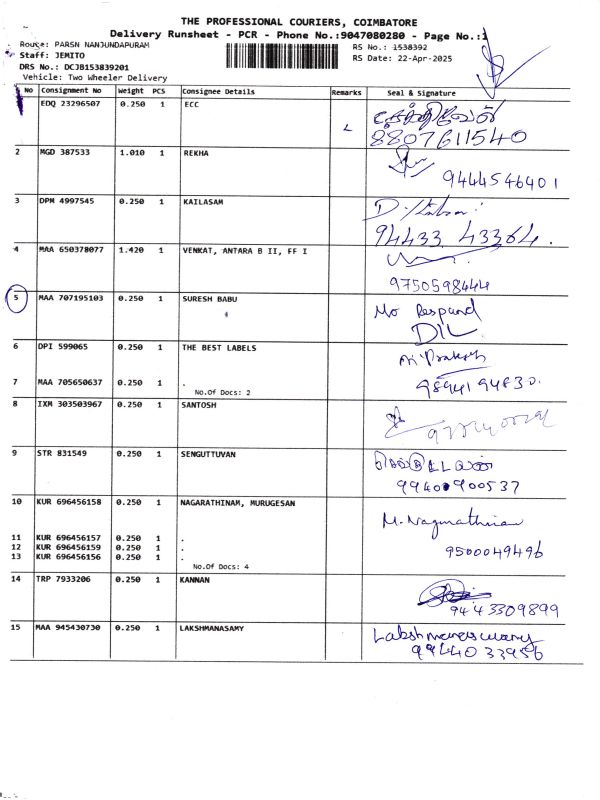 THE PROFESSIONAL COURIERS, COIMBATORE
Delivery Runsheet - PCR - Phone No.:9047080280 - Page No.:1
Route: PARSN NANJUNDAPURAM
RS No.: 1538392
Staff: JEMITO
RS Date: 22-Apr-2025
DRS No.: DCJB153839201
Vehicle: Two Wheeler Delivery
No Consignment No Weight PCS Consignee Details Remarks Seal & Signature
EDQ 23296507 0.250 1 ECC
8807611540
2 MGD 387533 1.010 1 REKHA
9444546401
3 DPM 4997545 0.250 1 KAILASAM
94433 43364.
4 MAA 650378077 1.420 1 VENKAT, ANTARA B II, FF I
9750598444
5 MAA 707195103 0.250 1 SURESH BABU
No Respond
D/L
6 DPI 599065 0.250 1 THE BEST LABELS
7 MAA 705650637 0.250 1 .
No.Of Docs: 2
8 IXM 303503967 0.250 1 SANTOSH
9 STR 831549 0.250 1 SENGUTTUVAN
9940900537
10 KUR 696456158 0.250 1 NAGARATHINAM, MURUGESAN
11 KUR 696456157 0.250 1 .
12 KUR 696456159 0.250 1 .
13 KUR 696456156 0.250 1 .
No.Of Docs: 4
9500049496
14 TRP 7933206 0.250 1 KANNAN
9443309899
15 MAA 945430730 0.250 1 LAKSHMANASAMY
9944033956